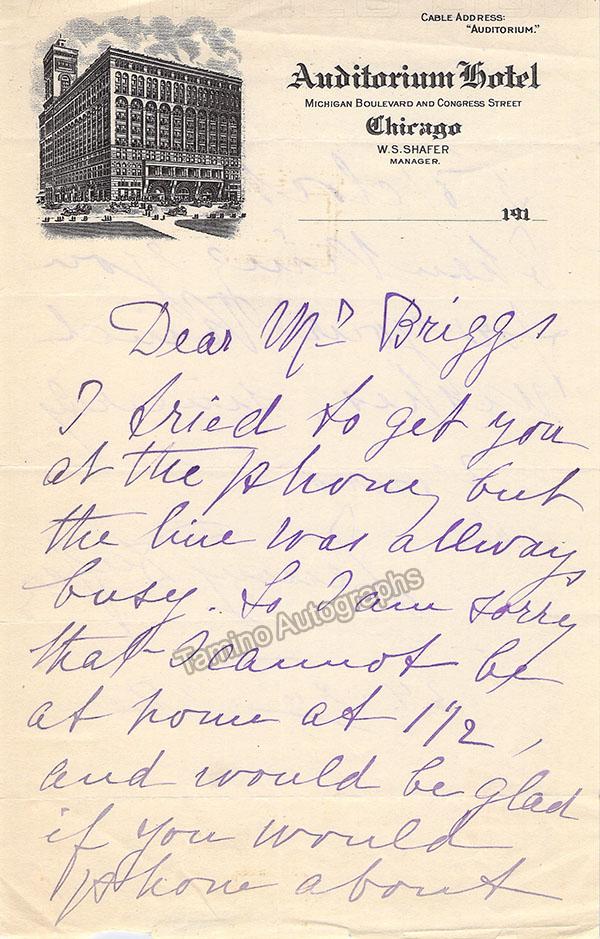 CABLE ADDRESS:
"AUDITORIUM."
Auditorium Hotel
MICHIGAN BOULEVARD AND CONGRESS STREET
Chicago
W. S. SHAFER
MANAGER.
191
Dear Mr Briggs
I tried to get you
at the phone, but
the line was allways
busy. So I am sorry
that I cannot be
at home at 1 1/2,
and would be glad
if you would
phone about
Tamino Autographs